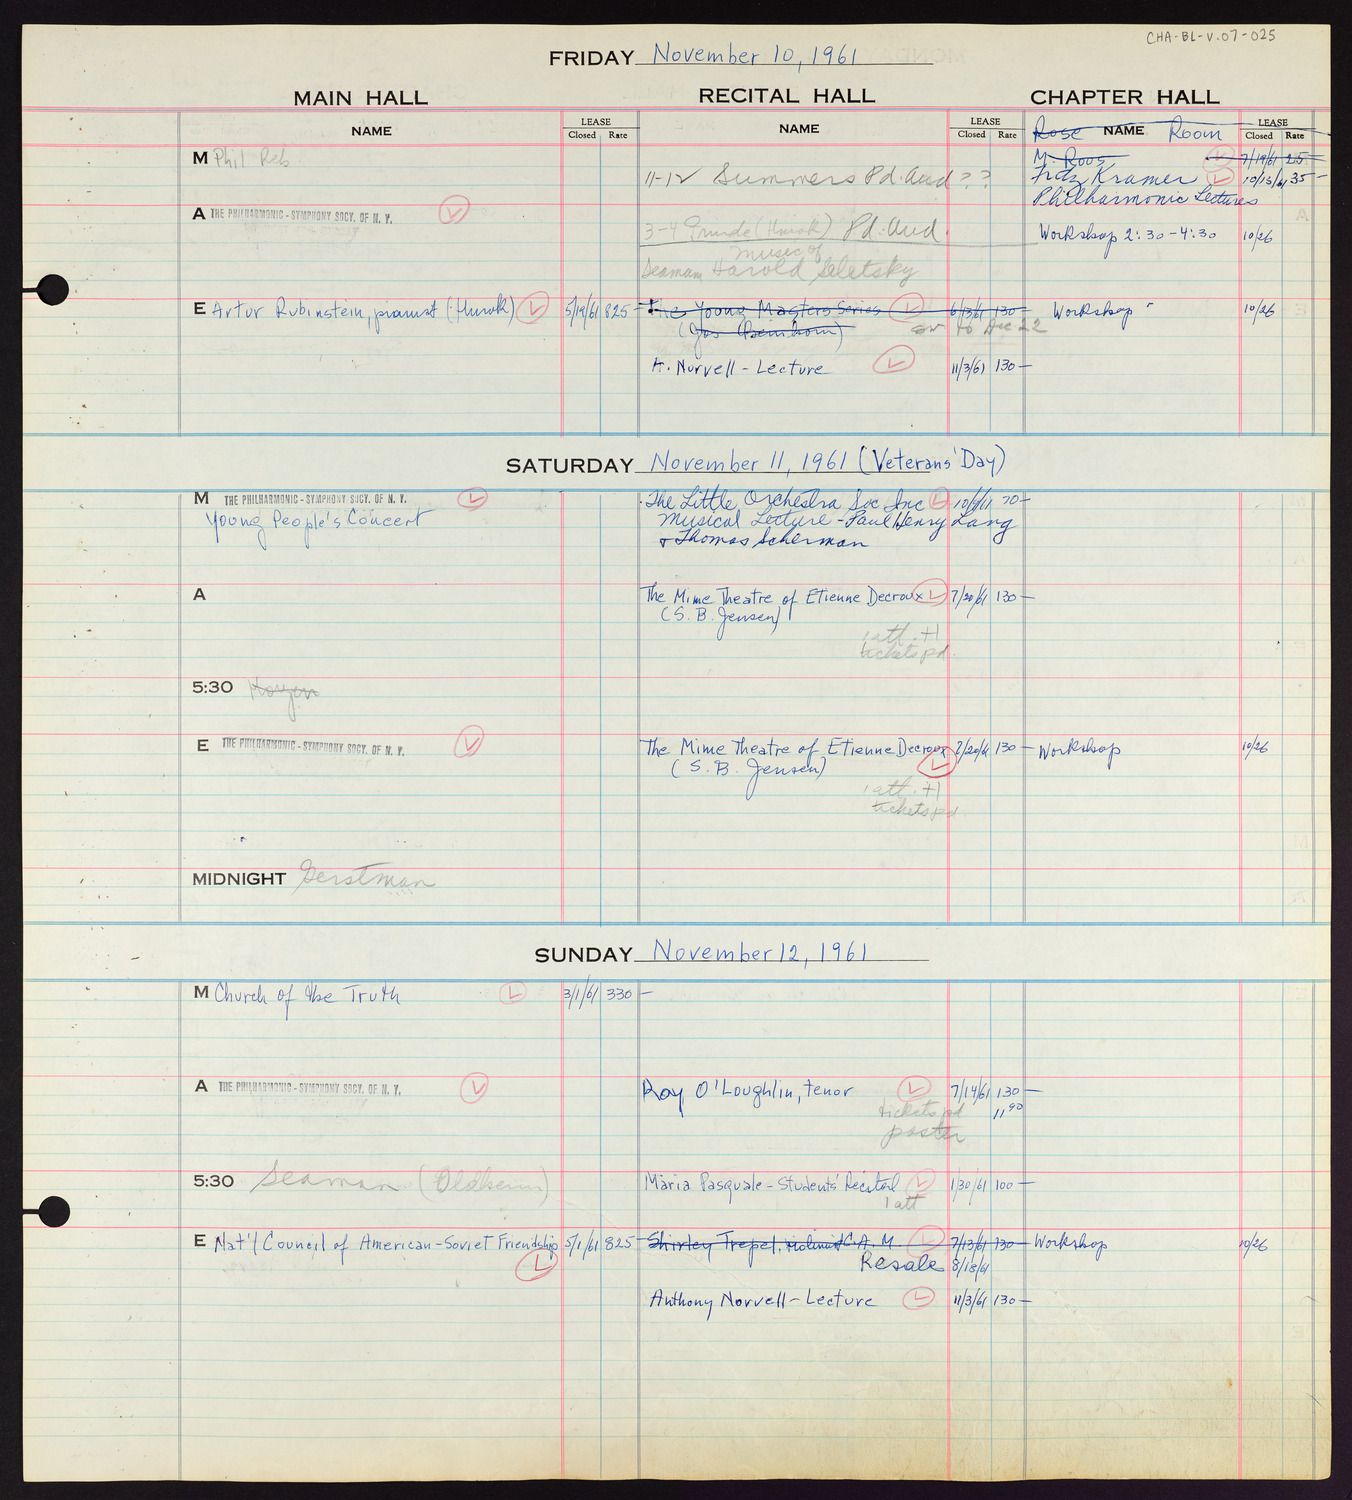 CHA-BL-V.07-025
FRIDAY November 10, 1961
MAIN HALL RECITAL HALL CHAPTER HALL
NAME LEASE Closed Rate NAME LEASE Closed Rate Rose NAME Room LEASE Closed Rate
M Phil Reh
M. Roos 7/19/61 25-
11-12 Summers Pd. Aud ?? Fritz Kramer 10/13/61 35-
Philharmonic Lectures
A THE PHILHARMONIC-SYMPHONY SOCY. OF N. Y.
3-4 (Hurok) Pd. Aud. Workshop 2:30-4:30 10/26
music of
Seaman Harold Seletsky
E Artur Rubinstein, pianist (Hurok) 5/19/61 825- The Young Masters Series 6/13/61 130- Workshop " 10/26
to Dec 22
A. Norvell - Lecture 11/3/61 130-
SATURDAY November 11, 1961 (Veterans' Day)
M THE PHILHARMONIC-SYMPHONY SOCY. OF N. Y. The Little Orchestra Soc Inc 10/9/61 70-
Young People's Concert Musical Lecture - Paul Henry Lang
+ Thomas Scherman
A The Mime Theatre of Etienne Decroux 7/20/61 130-
(S. B. Jensen)
1 att. +1
tickets pd.
5:30
E THE PHILHARMONIC-SYMPHONY SOCY. OF N. Y. The Mime Theatre of Etienne Decroux 7/20/61 130- Workshop 10/26
(S. B. Jensen)
1 att. +1
tickets pd
MIDNIGHT Gerstman
SUNDAY November 12, 1961
M Church of the Truth 3/1/61 330-
A THE PHILHARMONIC-SYMPHONY SOCY. OF N. Y. Roy O'Loughlin, tenor 7/14/61 130-
tickets pd 11 90
poster
5:30 Seaman Maria Pasquale - Students' Recital 1/30/61 100-
1 att
E Nat'l Council of American-Soviet Friendship 5/1/61 825- Shirley Trepel, violinist C.A.M. 7/13/61 130- Workshop 10/26
Resale 8/18/61
Anthony Norvell - Lecture 11/3/61 130-